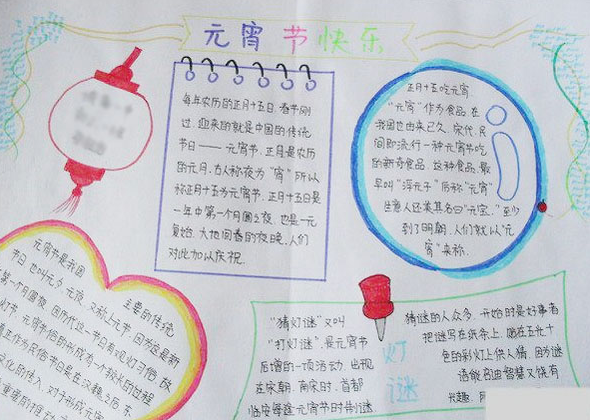 元宵节快乐
每年农历的正月十五日,春节刚
过,迎来的就是中国的传统
节日——元宵节.正月是农历
的元月,古人称夜为"宵"所以
称正月十五为元宵节.正月十五日是
一年中第一个月圆之夜,也是一元
复始,大地回春的夜晚,人们
对此加以庆祝.
正月十五吃元宵.
"元宵"作为食品,在
我国也由来已久.宋代,民
间即流行一种元宵节吃
的新奇食品.这种食品,最
早叫"浮元子"后称"元宵"
生意人还美其名曰"元宝."至少
到了明朝,人们就以"元
宵"来称.
元宵节是我国
主要的传统
节日,也叫元夕,元夜,又称上元节,因为这是新
第一个月圆夜.因历代这一节日有观灯习俗,故
灯节.元宵节俗的形成有一个较长的过程
"猜灯谜"又叫
"打灯谜"是元宵节
后增的一项活动,出现
在宋朝.南宋时,首都
临安每逢元宵节时制谜
灯谜
猜谜的人众多.开始时是好事者
把谜写在纸条上,贴在五光十
色的彩灯上供人猜.因为谜
语能启迪智慧又饶有
兴趣,